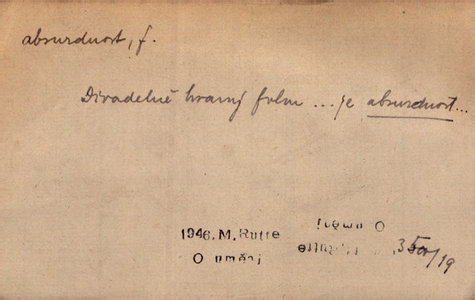 absurdnost, f.
Divadelně hraný film ... je absurdnost...
1946, M. Rutte
O umění
O umění
350/19